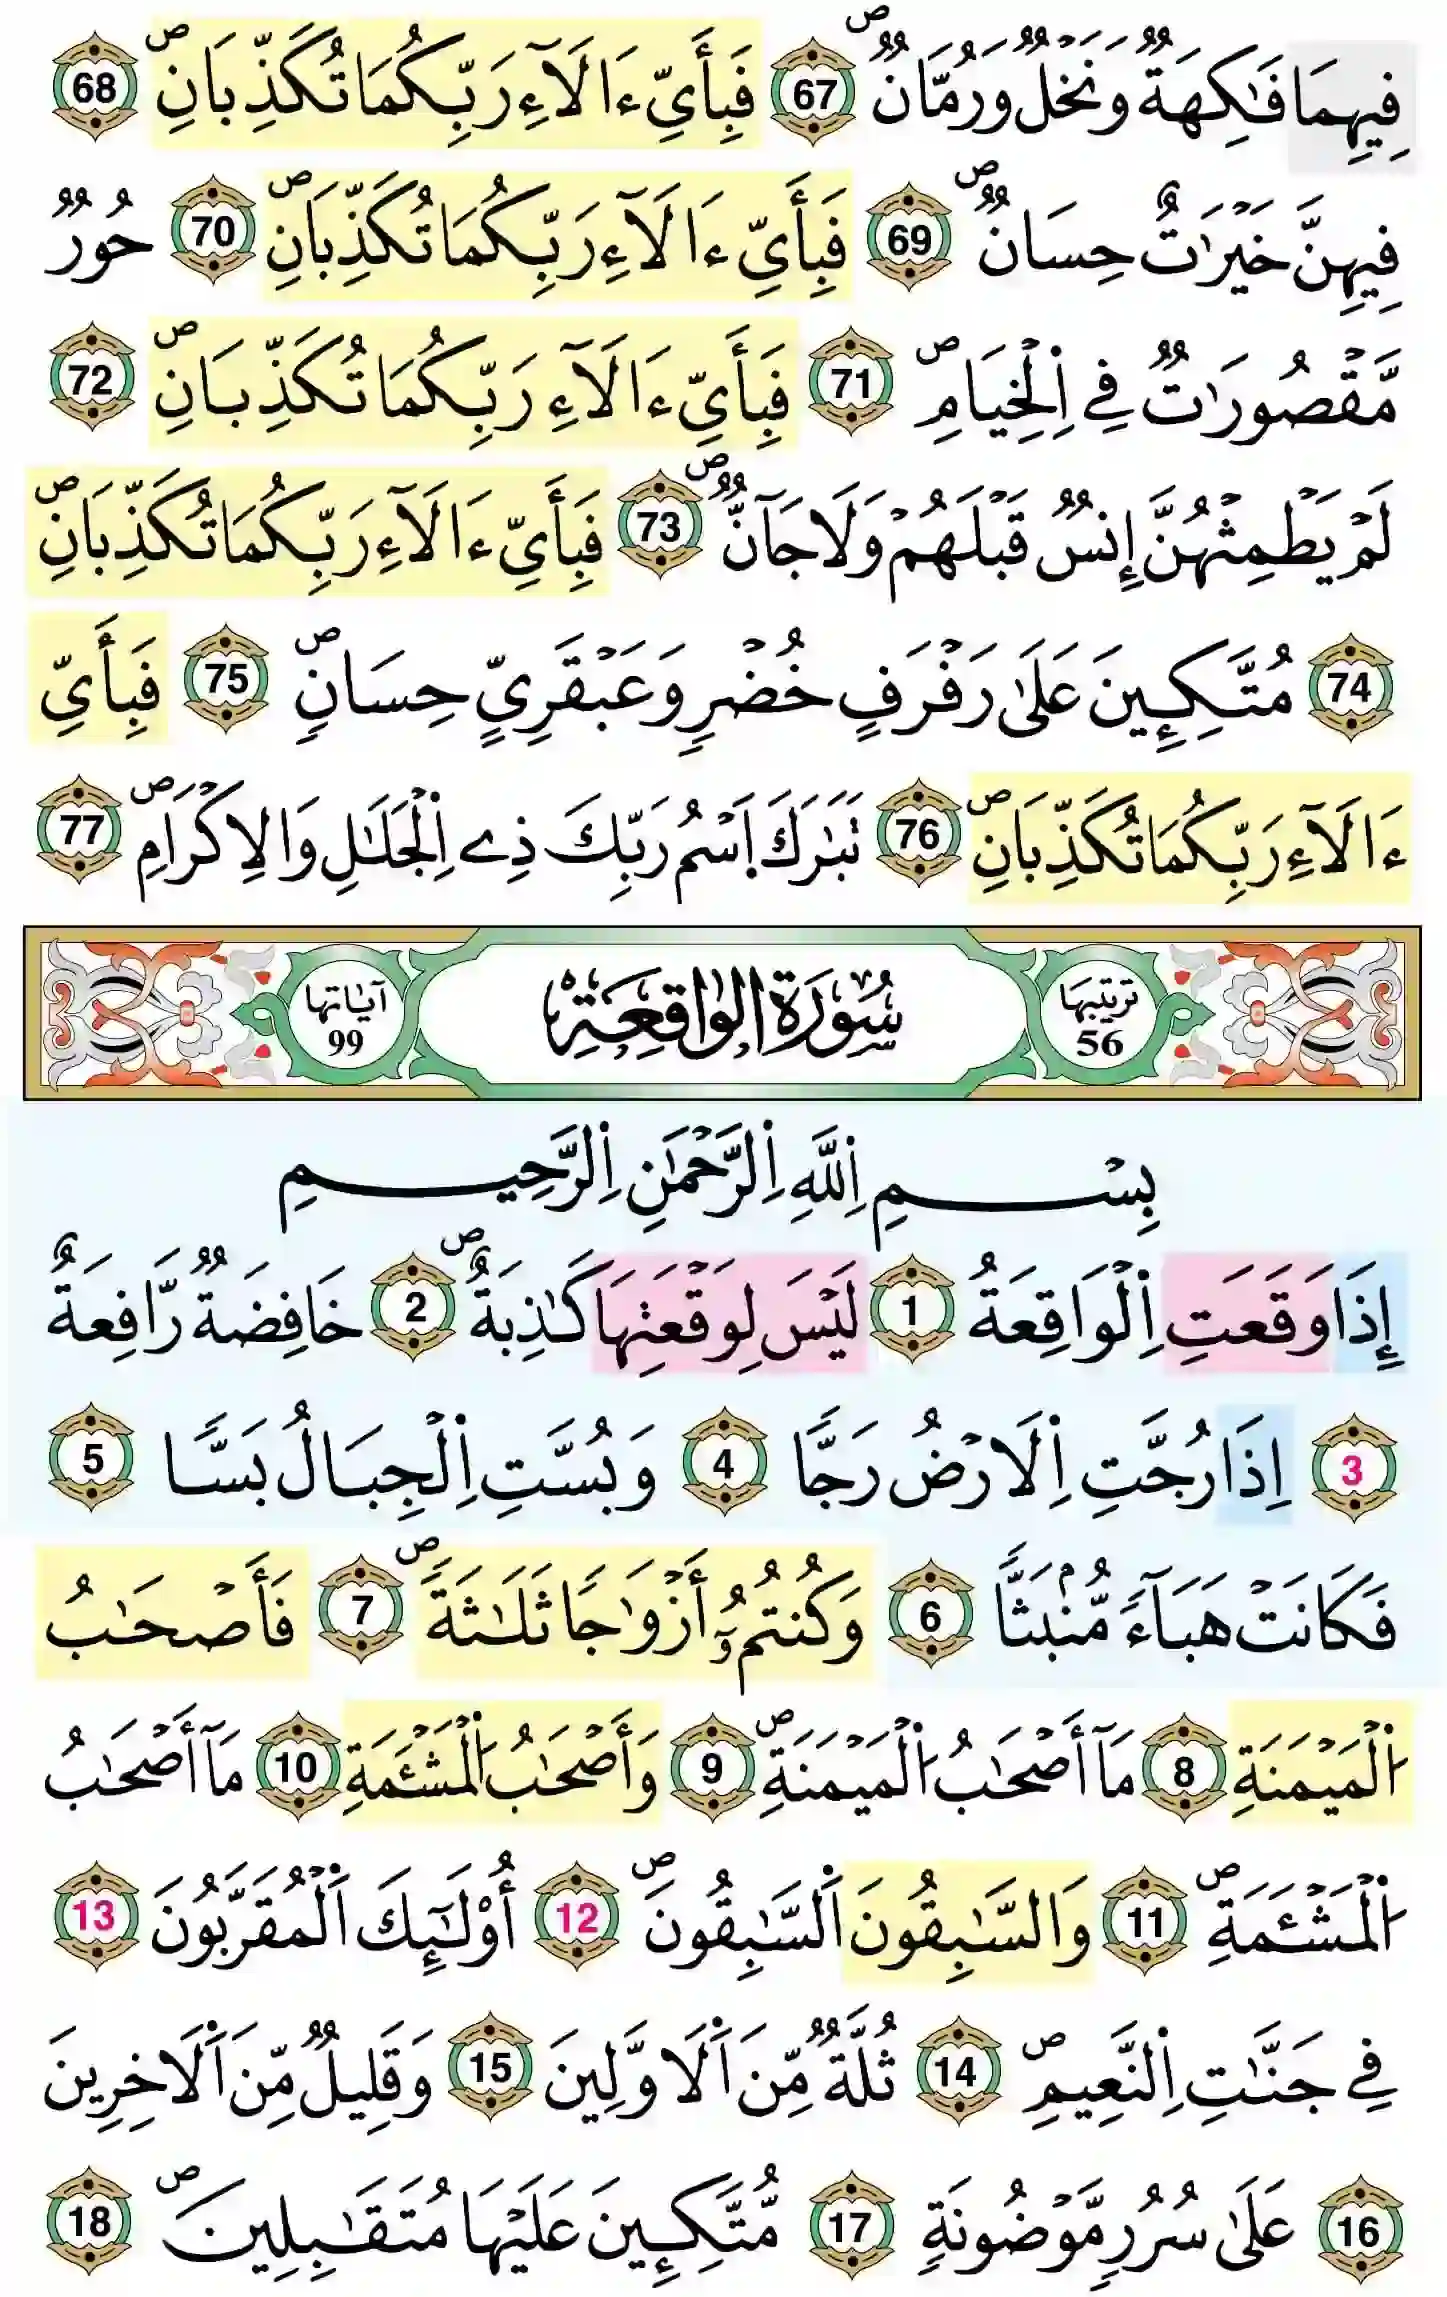 فِيهِمَا فَٰكِهَةٞ وَنَخۡلٞ وَرُمَّانٞۖ 67 فَبِأَيِّ ءَالَآءِ رَبِّكُمَا تُكَذِّبَانِۖ 68
فِيهِنَّ خَيۡرَٰتٌ حِسَانٞۖ 69 فَبِأَيِّ ءَالَآءِ رَبِّكُمَا تُكَذِّبَانِۖ 70 حُورٞ
مَّقۡصُورَٰتٞ فِے اِ۬لۡخِيَامِۖ 71 فَبِأَيِّ ءَالَآءِ رَبِّكُمَا تُكَذِّبَانِۖ 72
لَمۡ يَطۡمِثۡهُنَّ إِنسٞ قَبۡلَهُمۡ وَلَا جَآنّٞۖ 73 فَبِأَيِّ ءَالَآءِ رَبِّكُمَا تُكَذِّبَانِۖ
74 مُتَّكِـِٕينَ عَلَىٰ رَفۡرَفٍ خُضۡرٖ وَعَبۡقَرِيٍّ حِسَانٖۖ 75 فَبِأَيِّ
ءَالَآءِ رَبِّكُمَا تُكَذِّبَانِۖ 76 تَبَٰرَكَ اَ۪سۡمُ رَبِّكَ ذِے اِ۬لۡجَلَٰلِ وَالِاكۡرَامِۖ 77
ترتيبها 56 سُورَةُ الوَاقِعَةِ آياتها 99
بِسۡمِ اِ۬للَّهِ اِ۬لرَّحۡمَٰنِ اِ۬لرَّحِيمِ
إِذَا وَقَعَتِ اِ۬لۡوَاقِعَةُ 1 لَيۡسَ لِوَقۡعَتِهَا كَٰذِبَةٌۖ 2 خَافِضَةٞ رَّافِعَةٌ
3 اِذَا رُجَّتِ اِ۬لَارۡضُ رَجّٗا 4 وَبُسَّتِ اِ۬لۡجِبَالُ بَسّٗا 5
فَكَانَتۡ هَبَآءٗ مُّنۢبَثّٗا 6 وَكُنتُمُۥٓ أَزۡوَٰجٗا ثَلَٰثَةٗۖ 7 فَأَصۡحَٰبُ
اُ۬لۡمَيۡمَنَةِ 8 مَآ أَصۡحَٰبُ اُ۬لۡمَيۡمَنَةِۖ 9 وَأَصۡحَٰبُ اُ۬لۡمَشۡـَٔمَةِ 10 مَآ أَصۡحَٰبُ
اُ۬لۡمَشۡـَٔمَةِۖ 11 وَالسَّٰبِقُونَ اَ۬لسَّٰبِقُونَۖ 12 أُوْلَٰٓئِكَ اَ۬لۡمُقَرَّبُونَ 13
فِے جَنَّٰتِ اِ۬لنَّعِيمِۖ 14 ثُلَّةٞ مِّنَ اَ۬لَاوَّلِينَ 15 وَقَلِيلٞ مِّنَ اَ۬لَاخِرِينَ
16 عَلَىٰ سُرُرٖ مَّوۡضُونَةٖ 17 مُّتَّكِـِٕينَ عَلَيۡهَا مُتَقَٰبِلِينَۖ 18